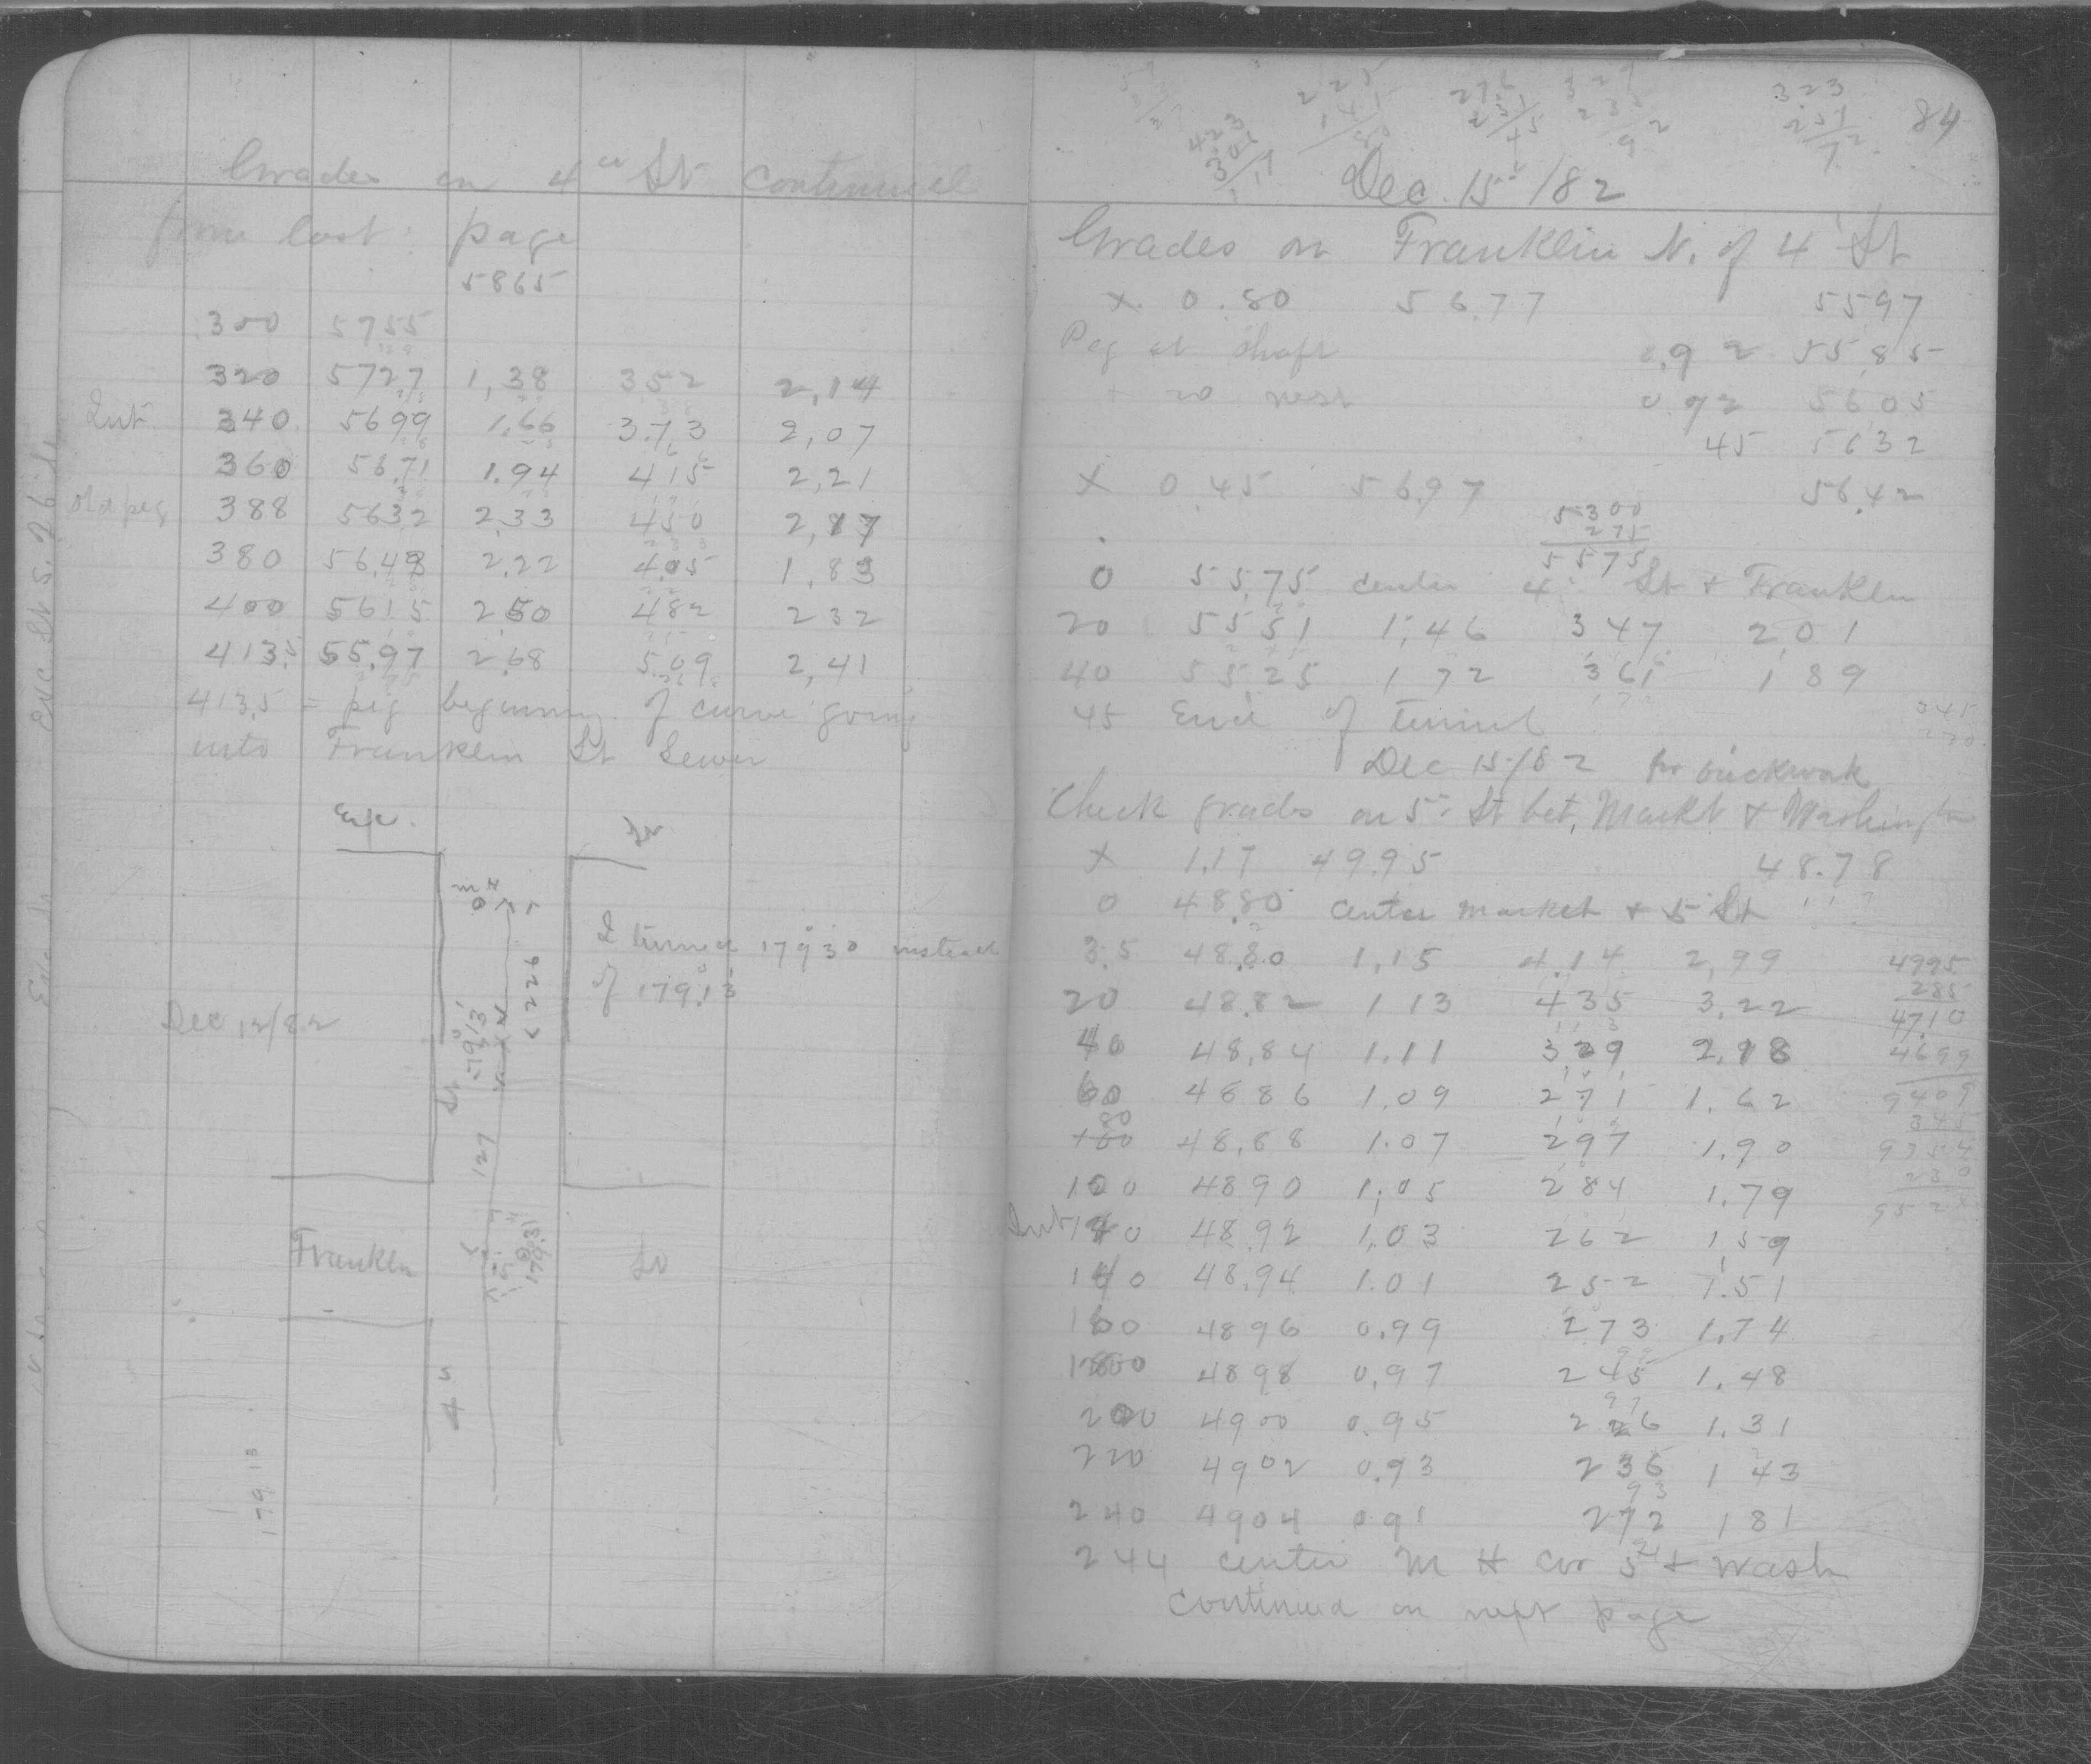 Grades on 4th St continued
from last page
5865
300 5755
320 5727 1,38 352 2,14
Int. 340 5699 1.66 3.73 2,07
360 56.71 1.94 415 2,21
Old peg 388 5632 2.33 450 2,17
380 56.48 2.22 4.05 1,83
400 5615 250 482 232
413.5 55.97 2.68 5.09 2,41
413.5 = peg beginning of curve going
into Franklin St Sewer
MH
I turned 179°30 instead
of 179.13
Dec 12/82
< 226
St
127
Franklin St
179.31
4
179 13
84
323
Dec. 15 /82
Grades on Franklin N. of 4 St
x 0.80 56.77 5597
Peg at shaft 0.92 55.85
+ 20 west 0.92 5605
45 5632
x 0.45 5697 56.42
5300
275
5575
0 55.75 center 4 St + Franklin
20 5551 1.46 347 201
40 5525 1 72 361 1 89
45 End of tunnel
Dec 15/82 for brickwork
Check grades on 5th St bet. Markt & Washington
x 1.17 49.95 48.78
0 48.80 center market + 5 St
3.5 48.80 1.15 4.14 2,99
20 48.82 1 13 435 3.22
40 48.84 1.11 329 2.18
60 4886 1.09 271 1.62
80 48.88 1.07 297 1.90
100 4890 1,05 284 1.79
Int 120 48.92 1.03 262 1,59
140 48.94 1.01 252 1.51
160 4896 0.99 273 1.74
180 4898 0.97 245 1.48
200 4900 0.95 226 1.31
220 4902 0.93 236 1 43
240 4904 0 91 272 1 81
244 center M H cor 5th + Wash
Continued on next page
4995
285
47.10
4699
9409
345
9754
230